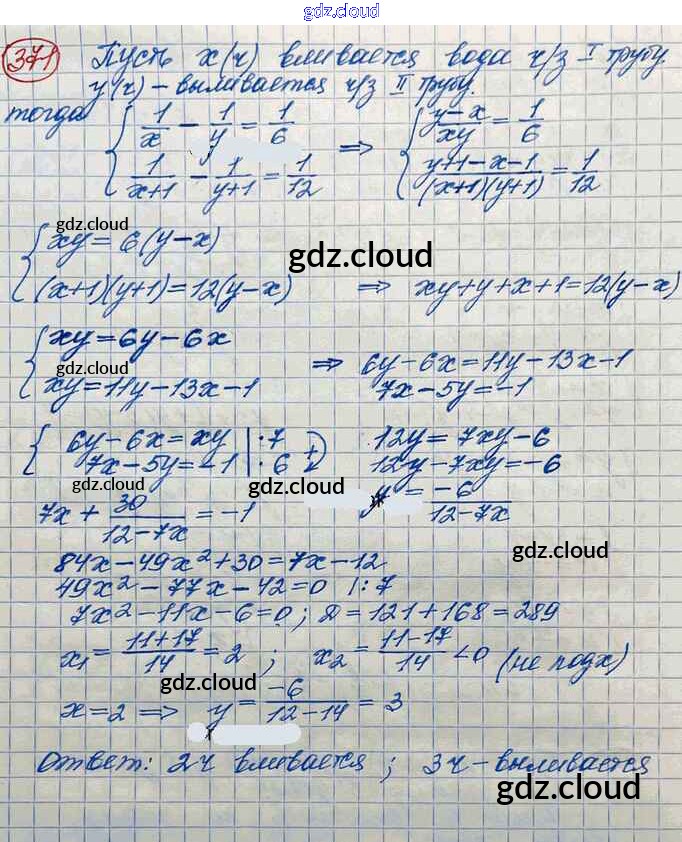 gdz.cloud
371 Пусть x(ч) вливается вода ч/з I трубу.
y(ч) - выливается ч/з II трубу.
тогда { 1/x - 1/y = 1/6 ⇒ { (y-x)/xy = 1/6
1/(x+1) - 1/(y+1) = 1/12 (y+1-x-1)/((x+1)(y+1)) = 1/12
gdz.cloud
{ xy = 6(y-x)
gdz.cloud
(x+1)(y+1) = 12(y-x) ⇒ xy+y+x+1 = 12(y-x)
{ xy = 6y-6x ⇒ 6y-6x = 11y-13x-1
gdz.cloud
xy = 11y-13x-1 7x-5y = -1
{ 6y-6x = xy | ·7 12y = 7xy-6
7x-5y = -1 | ·6 + 12y-7xy = -6
gdz.cloud gdz.cloud
7x + 30/(12-7x) = -1 y = -6/(12-7x)
gdz.cloud
84x-49x²+30 = 7x-12
49x²-77x-42=0 |:7
7x²-11x-6=0; D=121+168=289
x₁ = (11+17)/14 = 2; x₂ = (11-17)/14 <0 (не подх)
gdz.cloud
x=2 ⇒ y = -6/(12-14) = 3
Ответ: 2ч вливается; 3ч-выливается
gdz.cloud